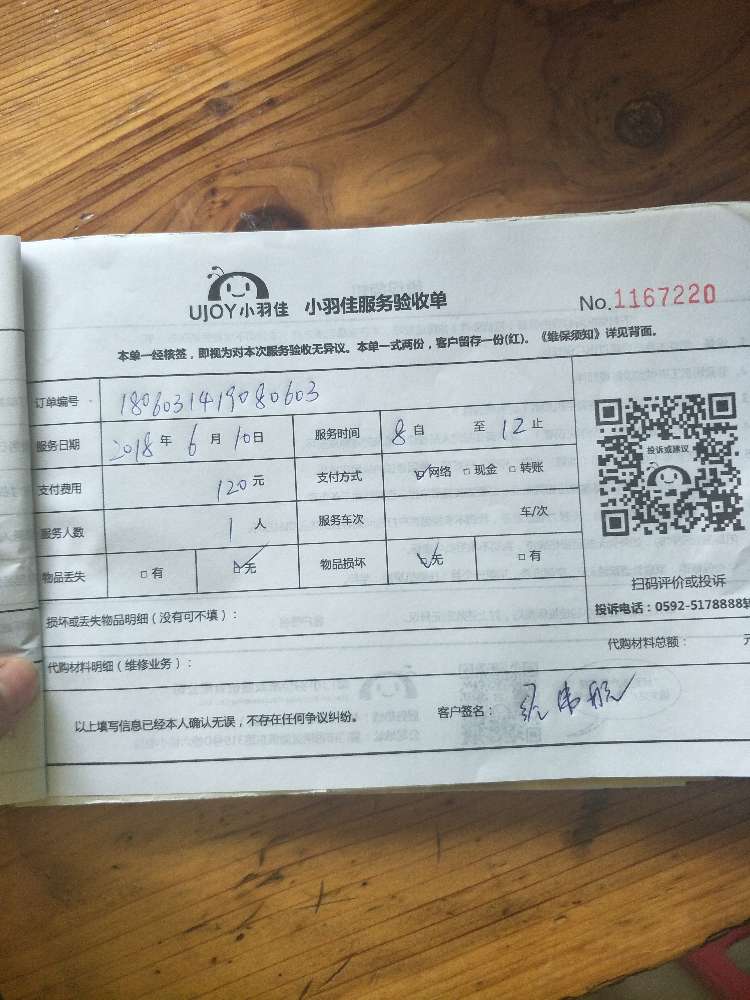 UJOY小羽佳 小羽佳服务验收单 No.1167220
本单一经核签，即视为对本次服务验收无异议。本单一式两份，客户留存一份(红)。《维保须知》详见背面。
订单编号 1806031419080603
服务日期 2018年6月10日 服务时间 8自 至12止
支付费用 120元 支付方式 ☑网络 □现金 □转账
服务人数 1人 服务车次 车/次
物品丢失 □有 ☑无 物品损坏 ☑无 □有
投诉或建议
扫码评价或投诉
投诉电话：0592-5178888转
损坏或丢失物品明细（没有可不填）：
代购材料明细（维修业务）： 代购材料总额： 元
以上填写信息已经本人确认无误，不存在任何争议纠纷。 客户签名：